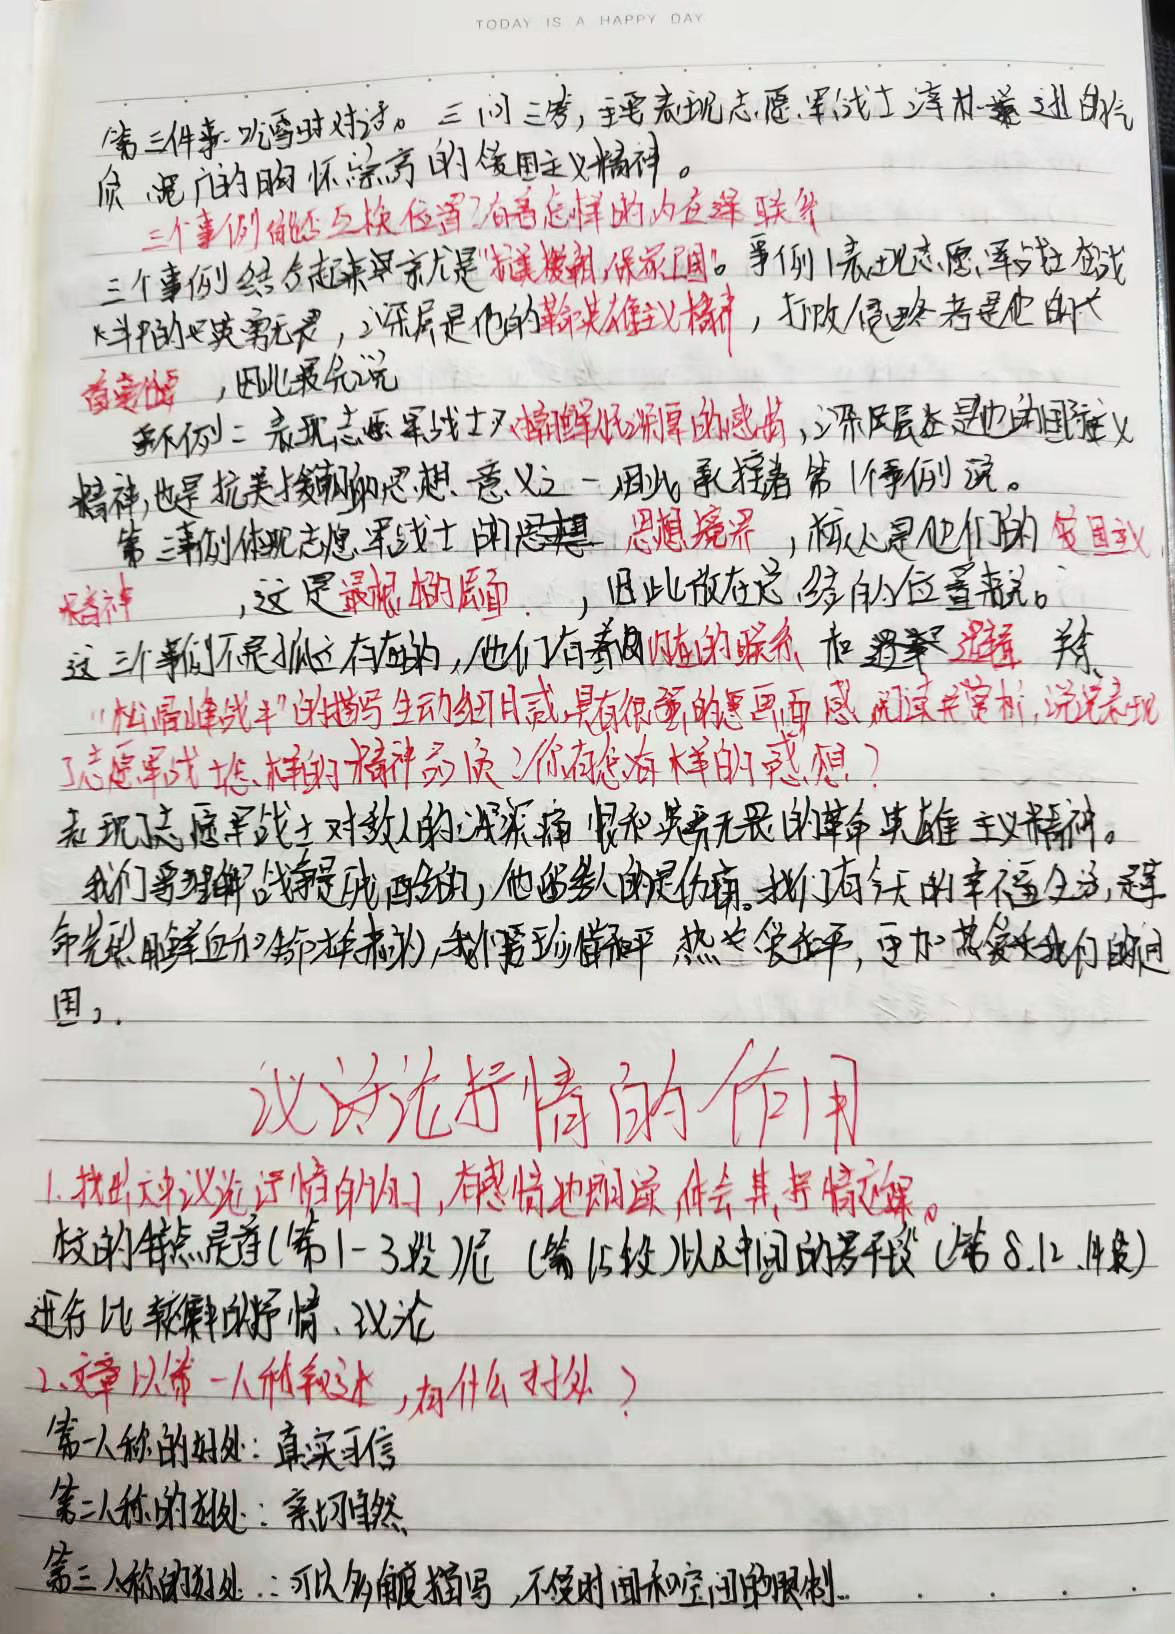 TODAY IS A HAPPY DAY
第三件事:吃雪时对话。三问三答,主要表现志愿军战士淳朴 谦逊的气
质,宽广的胸怀崇高的爱国主义精神。
三个事例能否互换位置?有着怎样的内在逻联系
三个事例结合起来其实就是"抗美援朝,保家卫国"。事例1表现志愿军战士在战
斗中的英勇无畏,深层是他的革命英雄主义精神,打败侵略者是他的
首要任务,因此最先说
事例二表现志愿军战士对朝鲜人民深厚的感情,深层还是他的国际主义
精神,也是抗美援朝的思想意义之一,因此承接着第1个事例说。
第三事例体现志愿军战士的思想境界,核心是他们的爱国主义
精神,这是最根本的层面,因此放在总结的位置来说。
这三个事例不是孤立存在的,他们有着内在的联系和逻辑关系
"松骨峰战斗"的描写生动细目感具有很强的画面感,阅读并赏析,说说表现
了志愿军战士怎样的精神品质?你有怎样的感想?
表现了志愿军战士对敌人的深深痛恨和英勇无畏的革命英雄主义精神。
我们要理解战争是残酷的,他留给人的是伤痛。我们有今天的幸福生活,是革
命先烈用鲜血和生命换来的,我们要珍惜和平,热爱和平,更加热爱我们的祖
国。
议论抒情的作用
1.找出文中议论抒情的句子,有感情地朗读,体会其抒情效果。
本文的特点是在(第1-3段)尾(第15段)以及中间的若干段(第8.12.14段)
进行比较集中的抒情、议论
2.文章以第一人称叙述,有什么好处?
第一人称的好处:真实可信
第二人称的好处:亲切自然
第三人称的好处:可以多角度描写,不受时间和空间的限制.